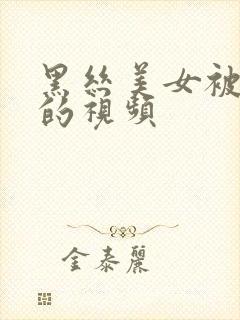 黑絲美女被
的視頻
金泰麗